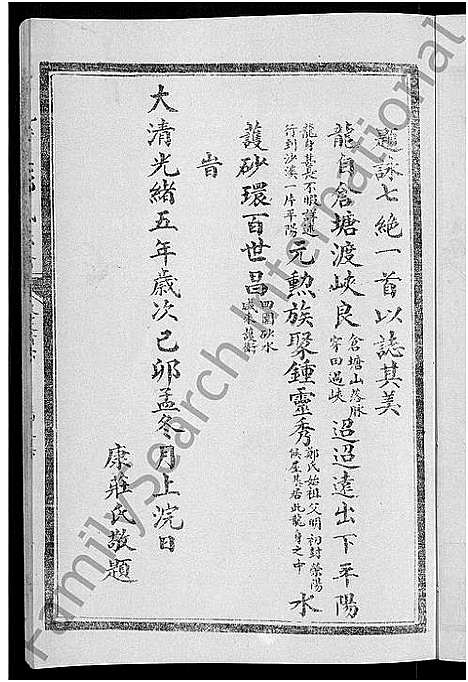 題詠七絕一首以誌其美
龍自倉塘渡峽良倉塘山落脉穿田過峽迢迢遠出下平陽
龍身甚長不暇詳述行到沙溪一片平陽元勲族聚鍾靈秀鄭氏始祖父明初封滎陽侯屋其居此龍身之中水
護砂環百世昌四圍砂水咸來護衛
旹
大清光緒五年歲次己卯孟冬月上浣日
康莊氏敬題
FamilySearch International